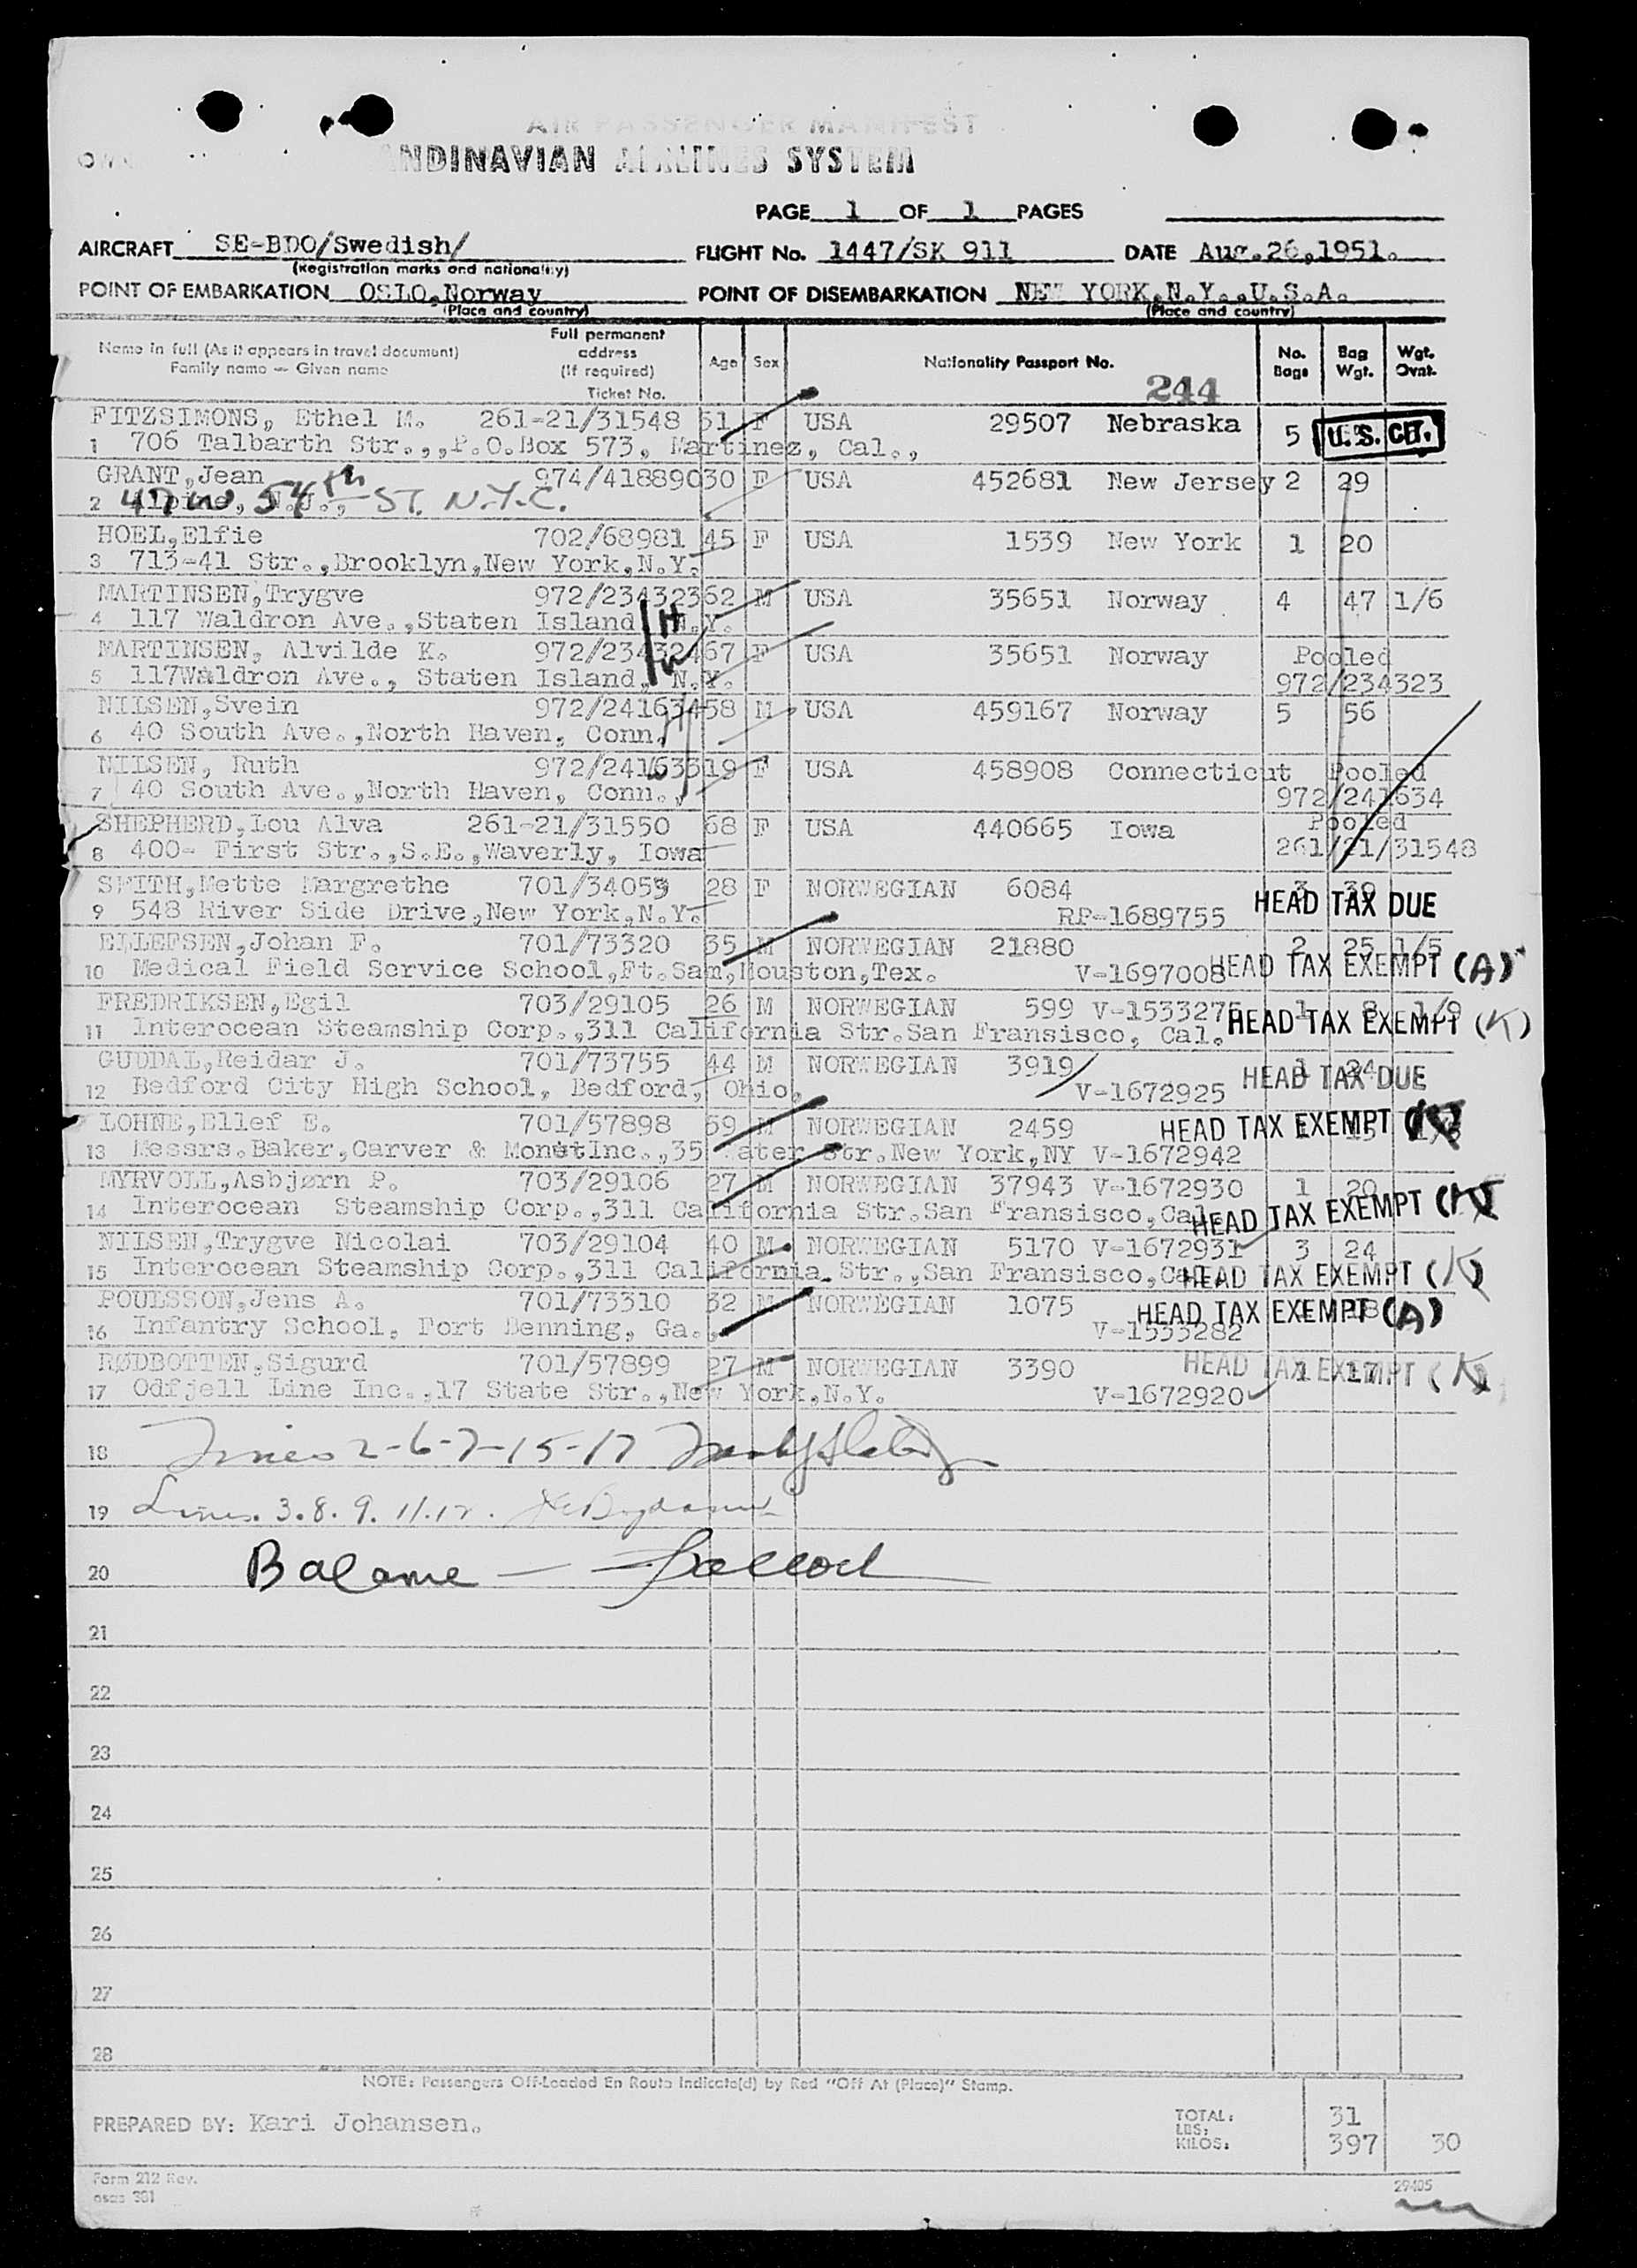 AIR PASSENGER MANIFEST
OW
ANDINAVIAN AIRLINES SYSTEM
PAGE 1 OF 1 PAGES
AIRCRAFT SE-BDO/Swedish/ FLIGHT No. 1447/SK 911 DATE Aug.26,1951.
(Registration marks and nationality)
POINT OF EMBARKATION OSLO,Norway POINT OF DISEMBARKATION NEW YORK,N.Y.,U.S.A.
(Place and country) (Place and country)
Name in full (As it appears in travel document) Family name — Given name Full permanent address (If required) Ticket No. Age Sex Nationality Passport No. No. Bags Bag Wgt. Wgt. Ovnt.
244
FITZSIMONS, Ethel M. 261-21/31548 51 F USA 29507 Nebraska 5 U.S. CIT.
1 706 Talbarth Str.,,P.O.Box 573, Martinez, Cal.,
GRANT,Jean 974/418890 30 F USA 452681 New Jersey 2 29
2 47 W. 54th ST. N.Y.C.
HOEL,Elfie 702/68981 45 F USA 1539 New York 1 20
3 713-41 Str.,Brooklyn,New York,N.Y.
MARTINSEN,Trygve 972/234323 62 M USA 35651 Norway 4 47 1/6
4 117 Waldron Ave.,Staten Island, N.Y. H
MARTINSEN, Alvilde K. 972/234324 67 F USA 35651 Norway Pooled
5 117Waldron Ave., Staten Island, N.Y. W 972/234323
NILSEN,Svein 972/241634 58 M USA 459167 Norway 5 56
6 40 South Ave.,North Haven, Conn.
NILSEN, Ruth 972/241635 19 F USA 458908 Connecticut Pooled
7 40 South Ave.,North Haven, Conn., 972/241634
SHEPHERD,Lou Alva 261-21/31550 68 F USA 440665 Iowa Pooled
8 400- First Str.,S.E.,Waverly, Iowa 261/21/31548
SMITH,Mette Margrethe 701/34053 28 F NORWEGIAN 6084 3 30 HEAD TAX DUE
9 548 River Side Drive,New York,N.Y. RP-1689755
ELLEFSEN,Johan F. 701/73320 35 M NORWEGIAN 21880 2 25 1/5
10 Medical Field Service School,Ft.Sam,Houston,Tex. V-1697008 HEAD TAX EXEMPT (A)
FREDRIKSEN,Egil 703/29105 26 M NORWEGIAN 599 V-1533275 1 8 1/9
11 Interocean Steamship Corp.,311 California Str.San Fransisco, Cal. HEAD TAX EXEMPT (K)
GUDDAL,Reidar J. 701/73755 44 M NORWEGIAN 3919 1 24 HEAD TAX DUE
12 Bedford City High School, Bedford, Ohio, V-1672925
LOHNE,Ellef E. 701/57898 59 M NORWEGIAN 2459 HEAD TAX EXEMPT
13 Messrs.Baker,Carver & Inc.,35 Water Str.New York,NY V-1672942
MYRVOLL,Asbjørn P. 703/29106 27 M NORWEGIAN 37943 V-1672930 1 20
14 Interocean Steamship Corp.,311 California Str.San Fransisco,Cal. HEAD TAX EXEMPT (K)
NILSEN,Trygve Nicolai 703/29104 40 M NORWEGIAN 5170 V-1672931 3 24
15 Interocean Steamship Corp.,311 California Str.,San Fransisco,Cal. HEAD TAX EXEMPT (K)
POULSSON,Jens A. 701/73310 32 M NORWEGIAN 1075 HEAD TAX EXEMPT (A)
16 Infantry School, Fort Benning, Ga., V-1533282
RØDBOTTEN,Sigurd 701/57899 27 M NORWEGIAN 3390 1 17 HEAD TAX EXEMPT (K)
17 Odfjell Line Inc.,17 State Str.,New York,N.Y. V-1672920
18 Lines 2-6-7-15-17
19 Lines. 3.8.9.11.12.
20 Balance —
21
22
23
24
25
26
27
28
NOTE: Passengers Off-Loaded En Route Indicate(d) by Red "Off At (Place)" Stamp.
PREPARED BY: Kari Johansen.
TOTAL: 31
LBS:
KILOS: 397 30
Form 212 Rev.
osas 381
29405